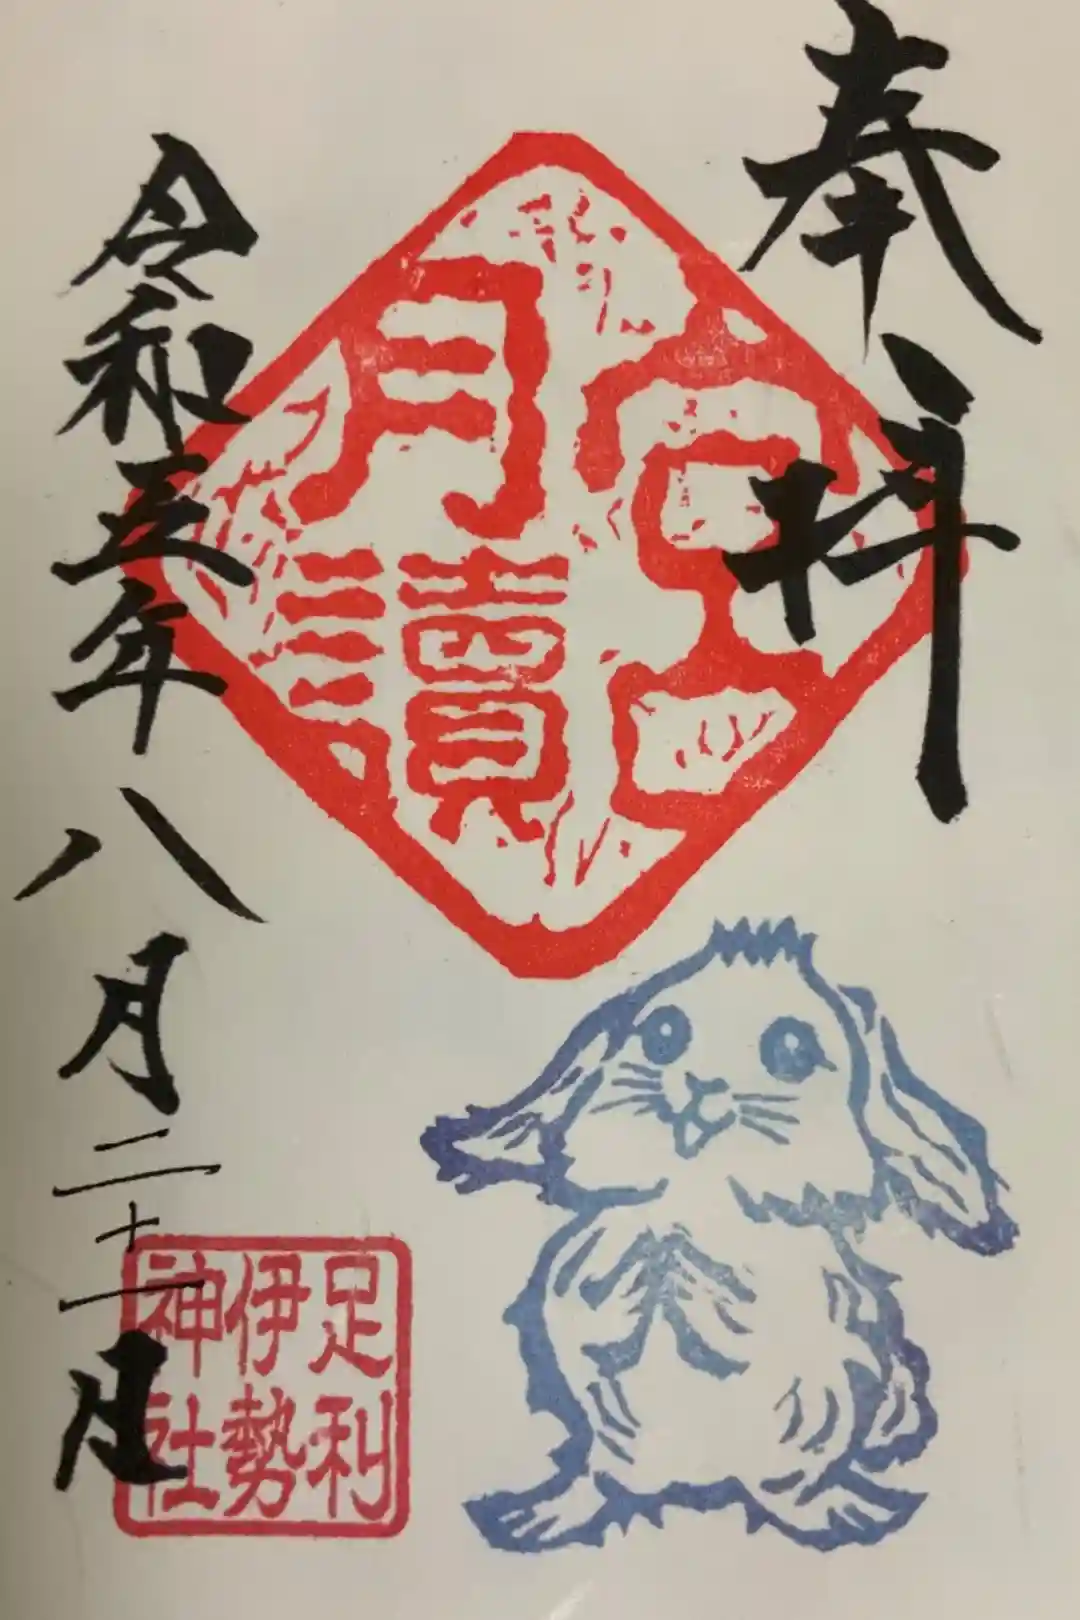 奉拝
月讀
宮
令和五年八月二十一日
足利
伊勢
神社